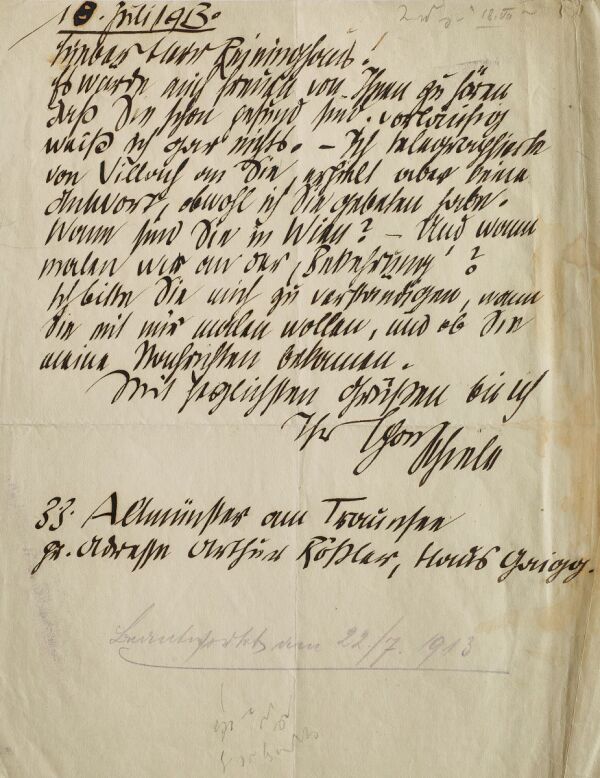 18. Juli 1913.
18.VII
Lieber Herr Reininghaus!
Es würde mich freuen von Ihnen zu hören
daß Sie schon gesund sind. vorläufig
weiß ich gar nichts. – Ich telegraphierte
von Villach an Sie, erhielt aber keine
Antwort, obwohl ich Sie gebeten habe.
Wann sind Sie in Wien? – Und wann
malen wir an der „Bekehrung“?
Ich bitte Sie mich zu verständigen, wann
Sie mit mir malen wollen, und ob Sie
meine Nachrichten bekamen.
Mit herzlichsten Grüßen bin ich
Ihr Egon
Schiele
zz. Altmünster am Traunsee
pr. Adresse Arthur Rößler, Haus Gaigg.
Beantwortet am 22./7. 1913